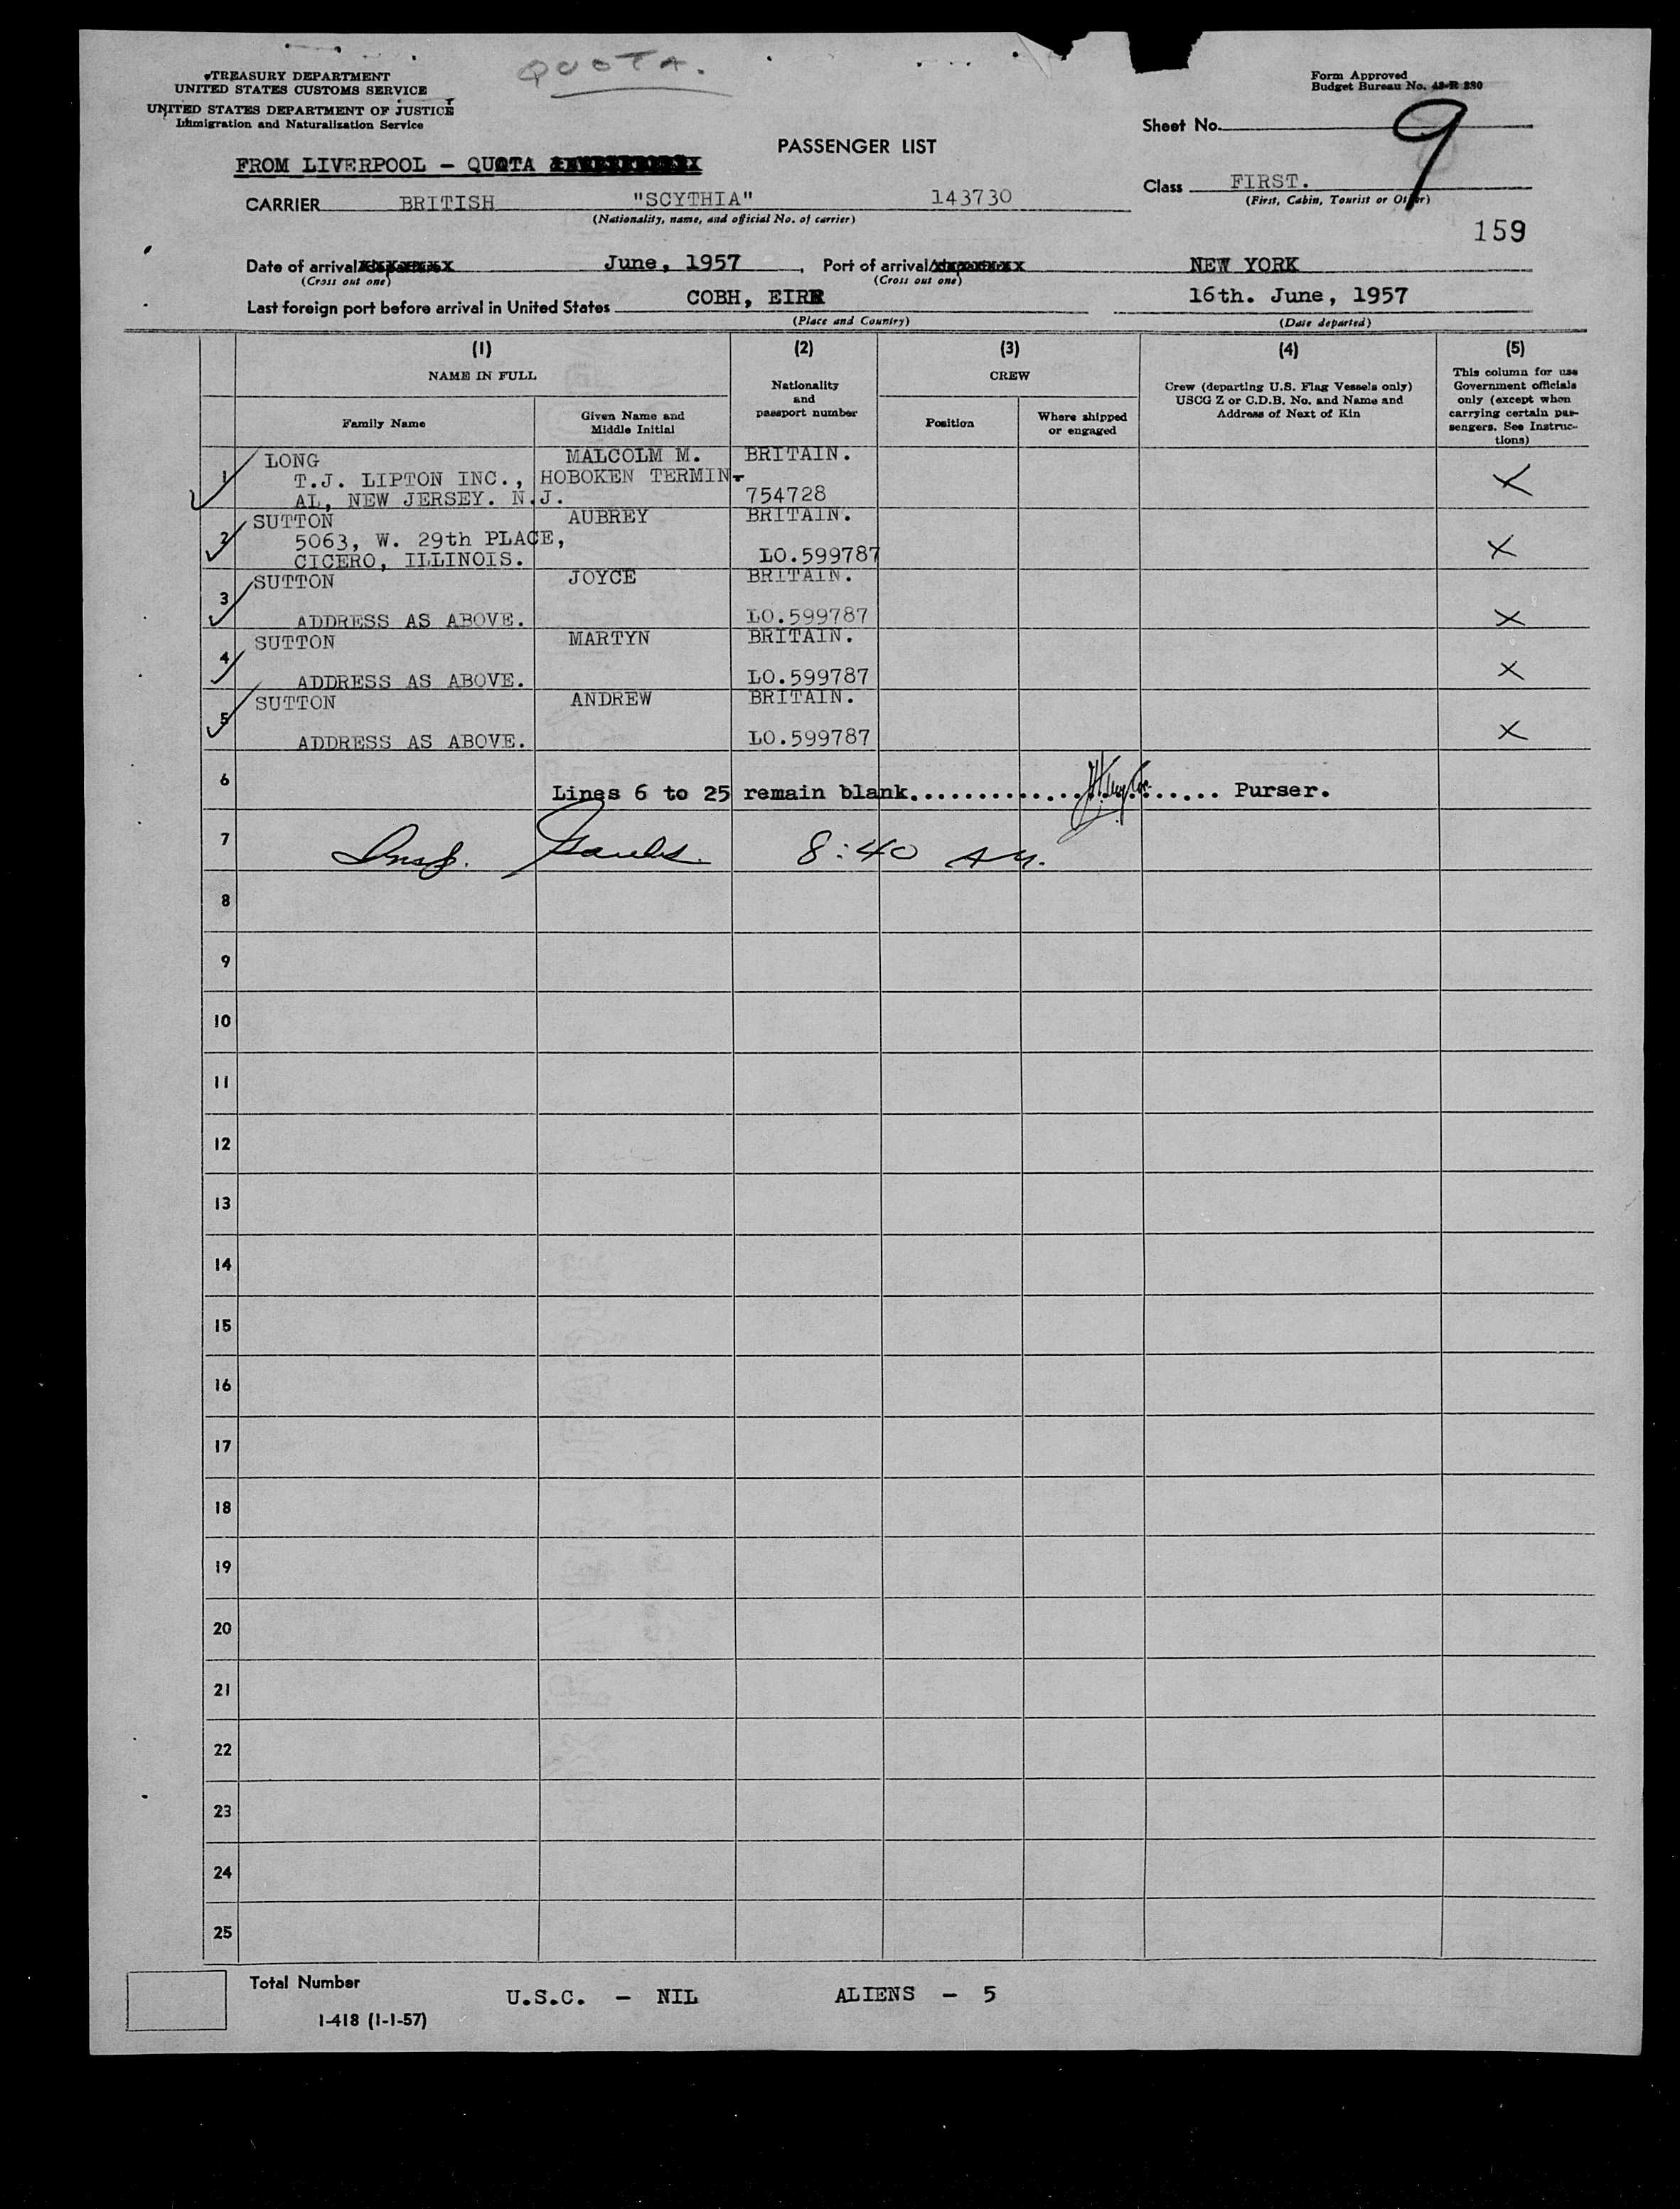 QUOTA.
TREASURY DEPARTMENT
UNITED STATES CUSTOMS SERVICE
UNITED STATES DEPARTMENT OF JUSTICE
Immigration and Naturalization Service
Form Approved
Budget Bureau No. 43-R 280
Sheet No. 9
PASSENGER LIST
FROM LIVERPOOL - QUOTA
Class FIRST.
(First, Cabin, Tourist or Other)
CARRIER BRITISH "SCYTHIA" 143730
(Nationality, name, and official No. of carrier)
159
Date of arrival June, 1957, Port of arrival NEW YORK
(Cross out one) (Cross out one)
Last foreign port before arrival in United States COBH, EIRE 16th. June, 1957
(Place and Country) (Date departed)
(1) (2) (3) (4) (5)
NAME IN FULL
Family Name
Given Name and
Middle Initial
Nationality
and
passport number
CREW
Position
Where shipped
or engaged
Crew (departing U.S. Flag Vessels only)
USCG Z or C.D.B. No. and Name and
Address of Next of Kin
This column for use
Government officials
only (except when
carrying certain pas-
sengers. See Instruc-
tions)
1 LONG MALCOLM M. BRITAIN.
T.J. LIPTON INC., HOBOKEN TERMIN-
AL, NEW JERSEY. N.J. 754728
2 SUTTON AUBREY BRITAIN.
5063, W. 29th PLACE,
CICERO, ILLINOIS. LO.599787
3 SUTTON JOYCE BRITAIN.
ADDRESS AS ABOVE. LO.599787
4 SUTTON MARTYN BRITAIN.
ADDRESS AS ABOVE. LO.599787
5 SUTTON ANDREW BRITAIN.
ADDRESS AS ABOVE. LO.599787
6 Lines 6 to 25 remain blank...................... Purser.
7 Insp. 8:40 AM.
8
9
10
11
12
13
14
15
16
17
18
19
20
21
22
23
24
25
Total Number U.S.C. - NIL ALIENS - 5
I-418 (1-1-57)